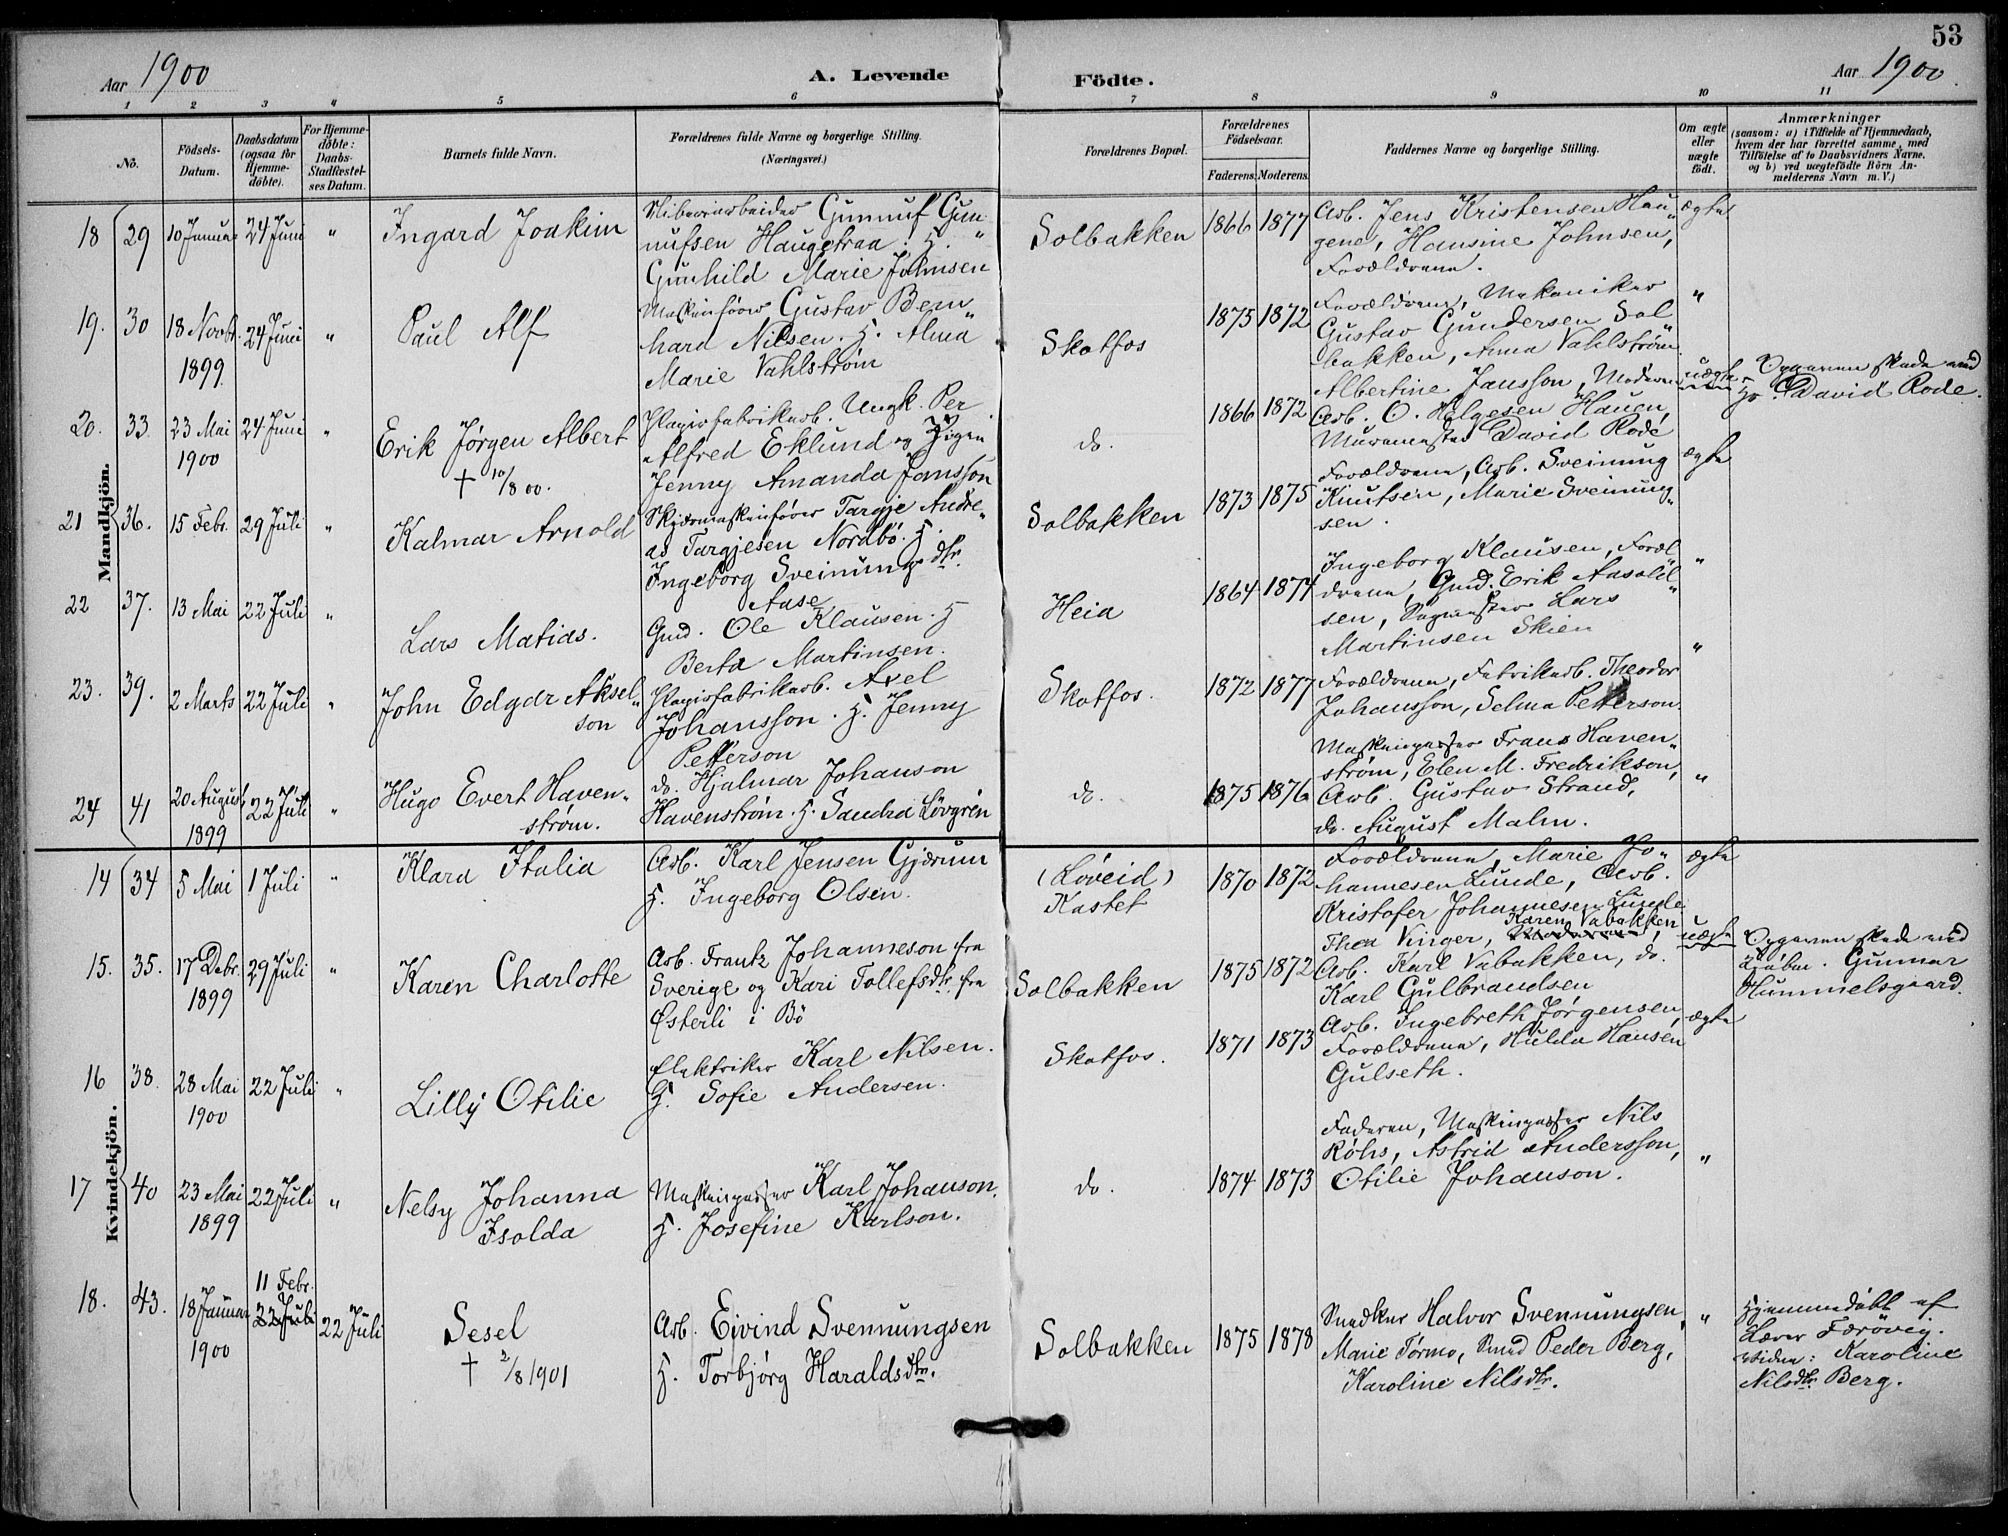 53
Aar 1900
A. Levende
Födte.
Aar 1900
1 2 3 4 5 6 7 8 9 10 11
Nö.
Födsels-
Datum.
Daabsdatum
(ogsaa for
Hjemme-
döbte).
For Hjemme-
döbte:
Daabs-
Stadfæstel-
ses Datum.
Barnets fulde Navn.
Forældrenes fulde Navne og borgerlige Stilling.
(Næringsvei.)
Forældrenes Bopæl.
Forældrenes
Födselsaar.
Faderens. Moderens.
Faddernes Navne og borgerlige Stilling.
Om ægte
eller
uægte
födt.
Anmærkninger
(saasom: a) i Tilfælde af Hjemmedaab,
hvem der har forrettet samme, med
Tilföielse af to Daabsvidners Navne.
og b) ved uægtefödte Börn An-
melderens Navn m. V.)
Mandkjön.
18 29 10 Januar 24 Juni " Ingard Joakim
Sliberiarbeider Gunnuf Gun-
nufsen Hauggtraa. H. "
Gunhild Marie Johnsen
Solbakken 1866 1877
Arb. Jens Kristensen Hau-
gene, Hansine Johnsen,
Forældrene.
ægte
19. 30 18 Novbr. 1899 24 Juni " Paul Alf
Maskinfører Gustav Bern-
hard Nilsen. H. Alma
Marie Vahlstrøm
Skotfos 1875 1872
Forældrene, Mekaniker
Gustav Gundersen Sol-
bakken, Anna Vahlstrøm.
"
20. 33 23 Mai 1900 24 Juni " Erik Jørgen Albert
† 10/8 00.
Papirfabrikarb. Ungk. Per
Alfred Eklund og Pigen
Jenny Amanda Jansson
do. 1866 1872
Albertine Jansson, Moderen
Arb. O. Helgesen Hauen,
Muremester David Rode
uægte
Opgaven skede ved
Hr. David Rode.
21 36. 15 Febr. 29 Juli " Kalmar Arnold
Skjæremaskinfører Targje Andre-
as Targjesen Nordbø. H.
Ingeborg Sveinungsdtr.
Aase
Solbakken 1873 1875
Forældrene, Arb. Sveinung
Knutsen, Marie Sveinung-
sen.
ægte
22 37. 13 Mai 22 Juli " Lars Matias.
Gmd. Ole Klausen. H
Berta Martinsen.
Heia 1864 1874
Ingeborg Klausen, Foræl-
drene, Gmd. Erik Aasold-
sen, Sagmester Lars
Martinsen Skien
"
23. 39. 2 Marts 22 Juli " John Edgar Aksel-
son
Papirfabrikarb. Axel
Johansson. H. Jenny
Petterson
Skotfos. 1872 1877
Forældrene, Fabrikarb. Theodor
Johansson, Selma Petterson.
"
24 41 20 August 1899 22 Juli " Hugo Evert Haven-
strøm.
do. Hjalmar Johanson
Havenstrøm. H. Sandra Lövgrén
do. 1875 1876
Maskinpasser Frans Haven-
strøm, Elen M. Fredrikson,
Arb. Gustav Strand,
do. August Malm.
"
Kvindekjön.
14 34 5 Mai 1 Juli " Klara Italia
Arb. Karl Jensen Gjærum
H. Ingeborg Olsen.
(Løveid)
Kastet
1870 1872
Forældrene, Marie Jo-
hannesen Lunde, Arb.
Kristofer Johannesen Lunde
ægte
15. 35. 17 Debr. 1899 29 Juli " Karen Charlotte
Arb. Frantz Johanneson fra
Sverige og Kari Tollefsdtr. fra
Østerli i Bö
Solbakken 1875 1872
Thea Vinger, Karen Vabakken
Arb. Karl Vabakken, do.
Karl Gulbrandsen
uægte
Opgaven skede ved
Gunnar
Hummelsgaard.
16 38. 28 Mai 1900 22 Juli " Lilly Otilie
Elektriker Karl Nilsen.
H. Sofie Andersen.
Skotfos. 1871 1873
Arb. Ingebreth Jørgensen,
Forældrene, Hulda Hansen
Gulseth.
ægte
17 40 23 Mai 1899 22 Juli " Nelsy Johanna
Isolda
Maskinpasser Karl Johanson.
H. Josefine Karlson.
do. 1874 1873
Faderen, Maskinpasser Nils
Røhs, Astrid Andersson,
Otilie Johanson.
"
18. 43. 18 Januar 1900 11 Febr. 22 Juli 22 Juli Sesel
† 2/8 1901
Arb. Eivind Svennungsen
H. Torbjørg Haraldsdtr.
Solbakken 1875 1878
Snedker Halvor Svennungsen,
Marie Tørmo, Smed Peder Berg,
Karoline Nilsdtr.
"
Hjemmedøbt af
Lærer Færövig.
Vidne: Karoline
Nilsdtr. Berg.